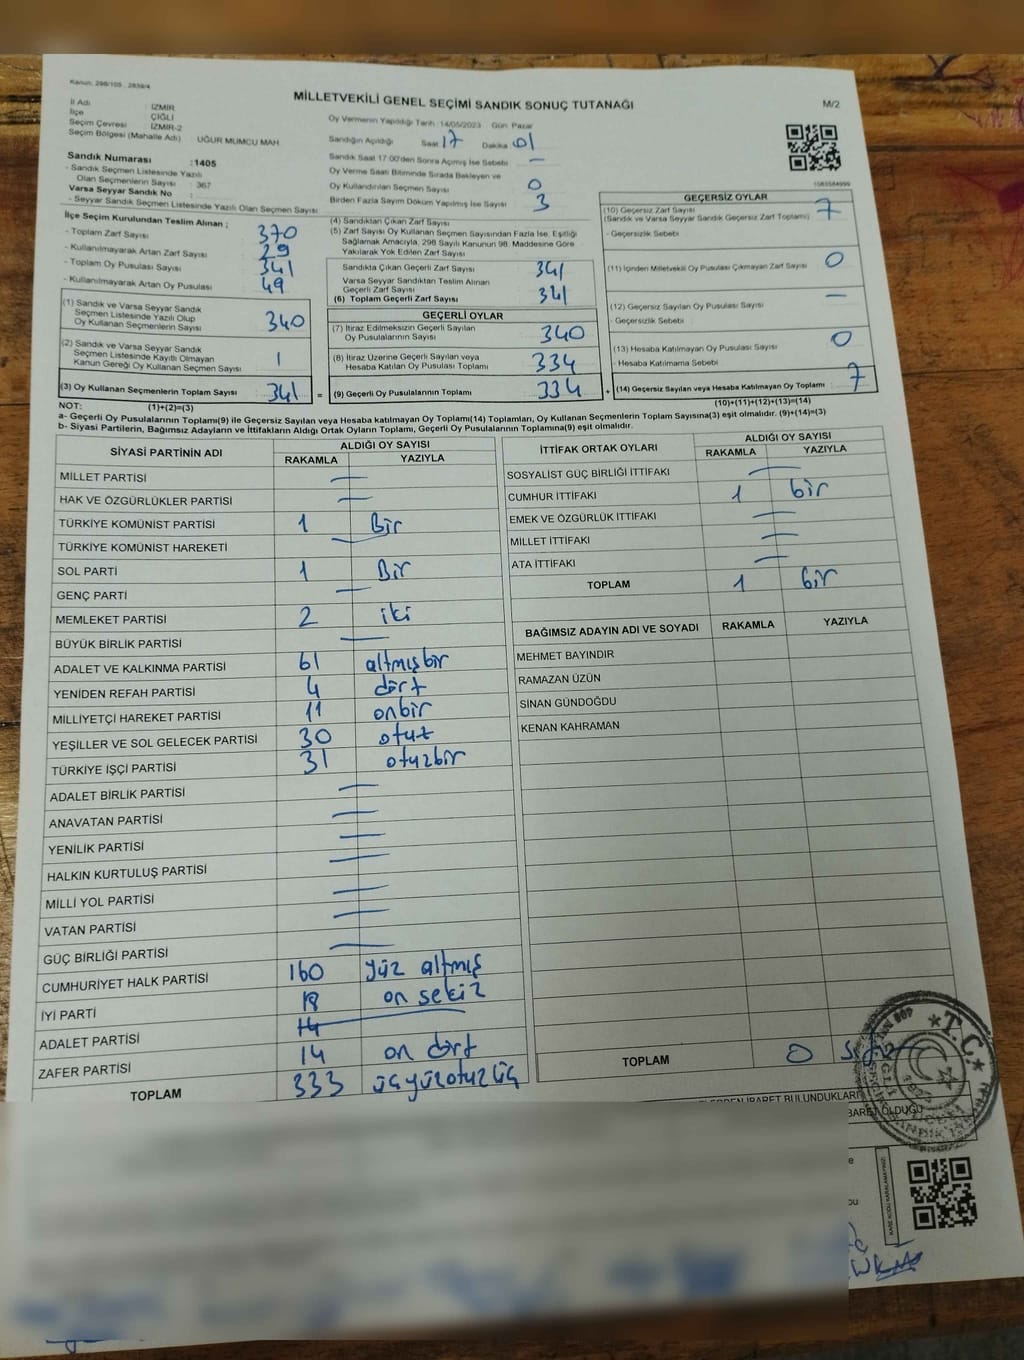 Kanun: 298/105 , 2839/4
MİLLETVEKİLİ GENEL SEÇİMİ SANDIK SONUÇ TUTANAĞI
M/2
İl Adı : İZMİR
İlçe : ÇİĞLİ
Seçim Çevresi : İZMİR-2
Seçim Bölgesi (Mahalle Adı) : UĞUR MUMCU MAH.
Oy Vermenin Yapıldığı Tarih :14/05/2023 Gün: Pazar
Sandığın Açıldığı : Saat 17 Dakika 01
Sandık Saat 17:00'den Sonra Açılmış İse Sebebi : —
Oy Verme Saati Bitiminde Sırada Bekleyen ve
Oy Kullandırılan Seçmen Sayısı : 0
Birden Fazla Sayım Döküm Yapılmış İse Sayısı : 3
Sandık Numarası : 1405
- Sandık Seçmen Listesinde Yazılı
Olan Seçmenlerin Sayısı : 367
Varsa Seyyar Sandık No :
- Seyyar Sandık Seçmen Listesinde Yazılı Olan Seçmen Sayısı :
İlçe Seçim Kurulundan Teslim Alınan ;
- Toplam Zarf Sayısı : 370
- Kullanılmayarak Artan Zarf Sayısı : 29
- Toplam Oy Pusulası Sayısı : 341
- Kullanılmayarak Artan Oy Pusulası : 49
(1) Sandık ve Varsa Seyyar Sandık
Seçmen Listesinde Yazılı Olup
Oy Kullanan Seçmenlerin Sayısı : 340
(2) Sandık ve Varsa Seyyar Sandık
Seçmen Listesinde Kayıtlı Olmayan
Kanun Gereği Oy Kullanan Seçmen Sayısı : 1
(3) Oy Kullanan Seçmenlerin Toplam Sayısı : 341
(4) Sandıktan Çıkan Zarf Sayısı :
(5) Zarf Sayısı Oy Kullanan Seçmen Sayısından Fazla İse, Eşitliği
Sağlamak Amacıyla, 298 Sayılı Kanunun 98. Maddesine Göre
Yakılarak Yok Edilen Zarf Sayısı :
Sandıkta Çıkan Geçerli Zarf Sayısı : 341
Varsa Seyyar Sandıktan Teslim Alınan
Geçerli Zarf Sayısı :
(6) Toplam Geçerli Zarf Sayısı : 341
GEÇERLİ OYLAR
(7) İtiraz Edilmeksizin Geçerli Sayılan
Oy Pusulalarının Sayısı : 340
(8) İtiraz Üzerine Geçerli Sayılan veya
Hesaba Katılan Oy Pusulası Toplamı : 334
= (9) Geçerli Oy Pusulalarının Toplamı : 334
GEÇERSİZ OYLAR
(10) Geçersiz Zarf Sayısı : 7
(Sandık ve Varsa Seyyar Sandık Geçersiz Zarf Toplamı)
- Geçersizlik Sebebi :
(11) İçinden Milletvekili Oy Pusulası Çıkmayan Zarf Sayısı : 0
(12) Geçersiz Sayılan Oy Pusulası Sayısı : —
- Geçersizlik Sebebi :
(13) Hesaba Katılmayan Oy Pusulası Sayısı : 0
- Hesaba Katılmama Sebebi :
+ (14) Geçersiz Sayılan veya Hesaba Katılmayan Oy Toplamı : 7
NOT: (1)+(2)=(3)
(10)+(11)+(12)+(13)=(14)
a- Geçerli Oy Pusulalarının Toplamı(9) ile Geçersiz Sayılan veya Hesaba katılmayan Oy Toplamı(14) Toplamları, Oy Kullanan Seçmenlerin Toplam Sayısına(3) eşit olmalıdır. (9)+(14)=(3)
b- Siyasi Partilerin, Bağımsız Adayların ve İttifakların Aldığı Ortak Oyların Toplamı, Geçerli Oy Pusulalarının Toplamına(9) eşit olmalıdır.
SİYASİ PARTİNİN ADI
ALDIĞI OY SAYISI
RAKAMLA YAZIYLA
MİLLET PARTİSİ —
HAK VE ÖZGÜRLÜKLER PARTİSİ —
TÜRKİYE KOMÜNİST PARTİSİ 1 Bir
TÜRKİYE KOMÜNİST HAREKETİ —
SOL PARTİ 1 Bir
GENÇ PARTİ —
MEMLEKET PARTİSİ 2 iki
BÜYÜK BİRLİK PARTİSİ —
ADALET VE KALKINMA PARTİSİ 61 altmışbir
YENİDEN REFAH PARTİSİ 4 dört
MİLLİYETÇİ HAREKET PARTİSİ 11 onbir
YEŞİLLER VE SOL GELECEK PARTİSİ 30 otuz
TÜRKİYE İŞÇİ PARTİSİ 31 otuzbir
ADALET BİRLİK PARTİSİ —
ANAVATAN PARTİSİ —
YENİLİK PARTİSİ —
HALKIN KURTULUŞ PARTİSİ —
MİLLİ YOL PARTİSİ —
VATAN PARTİSİ —
GÜÇ BİRLİĞİ PARTİSİ —
CUMHURİYET HALK PARTİSİ 160 yüz altmış
İYİ PARTİ 18 on sekiz
ADALET PARTİSİ 14 —
ZAFER PARTİSİ 14 on dört
TOPLAM 333 üçyüzotuzüç
İTTİFAK ORTAK OYLARI
ALDIĞI OY SAYISI
RAKAMLA YAZIYLA
SOSYALİST GÜÇ BİRLİĞİ İTTİFAKI —
CUMHUR İTTİFAKI 1 bir
EMEK VE ÖZGÜRLÜK İTTİFAKI —
MİLLET İTTİFAKI —
ATA İTTİFAKI —
TOPLAM 1 bir
BAĞIMSIZ ADAYIN ADI VE SOYADI RAKAMLA YAZIYLA
MEHMET BAYINDIR
RAMAZAN ÜZÜN
SİNAN GÜNDOĞDU
KENAN KAHRAMAN
TOPLAM 0 sıfır
T.C.
İBARET BULUNDUKLARI
OLDUĞU